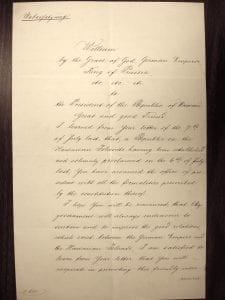 William
by the Grace of God, German Emperor,
King of Prussia
etc. etc. etc.
to
the President of the Republic of Hawaii
Great and good Friend,
I learned from Your letter of the 7th
of July last, that a Republic in the
Hawaiian Islands having been established
and solemnly proclaimed on the 4th of July
last, You have assumed the office of pre-
sident with all the formalities prescribed
by the constitution thereof.
I beg You will be convinced that My
government will always endeavour to
and to improve the good relations
which exist between the German Empire and
the Hawaiian Islands. I am satisfied to
learn from Your letter that You will
in promoting this friendly inter-